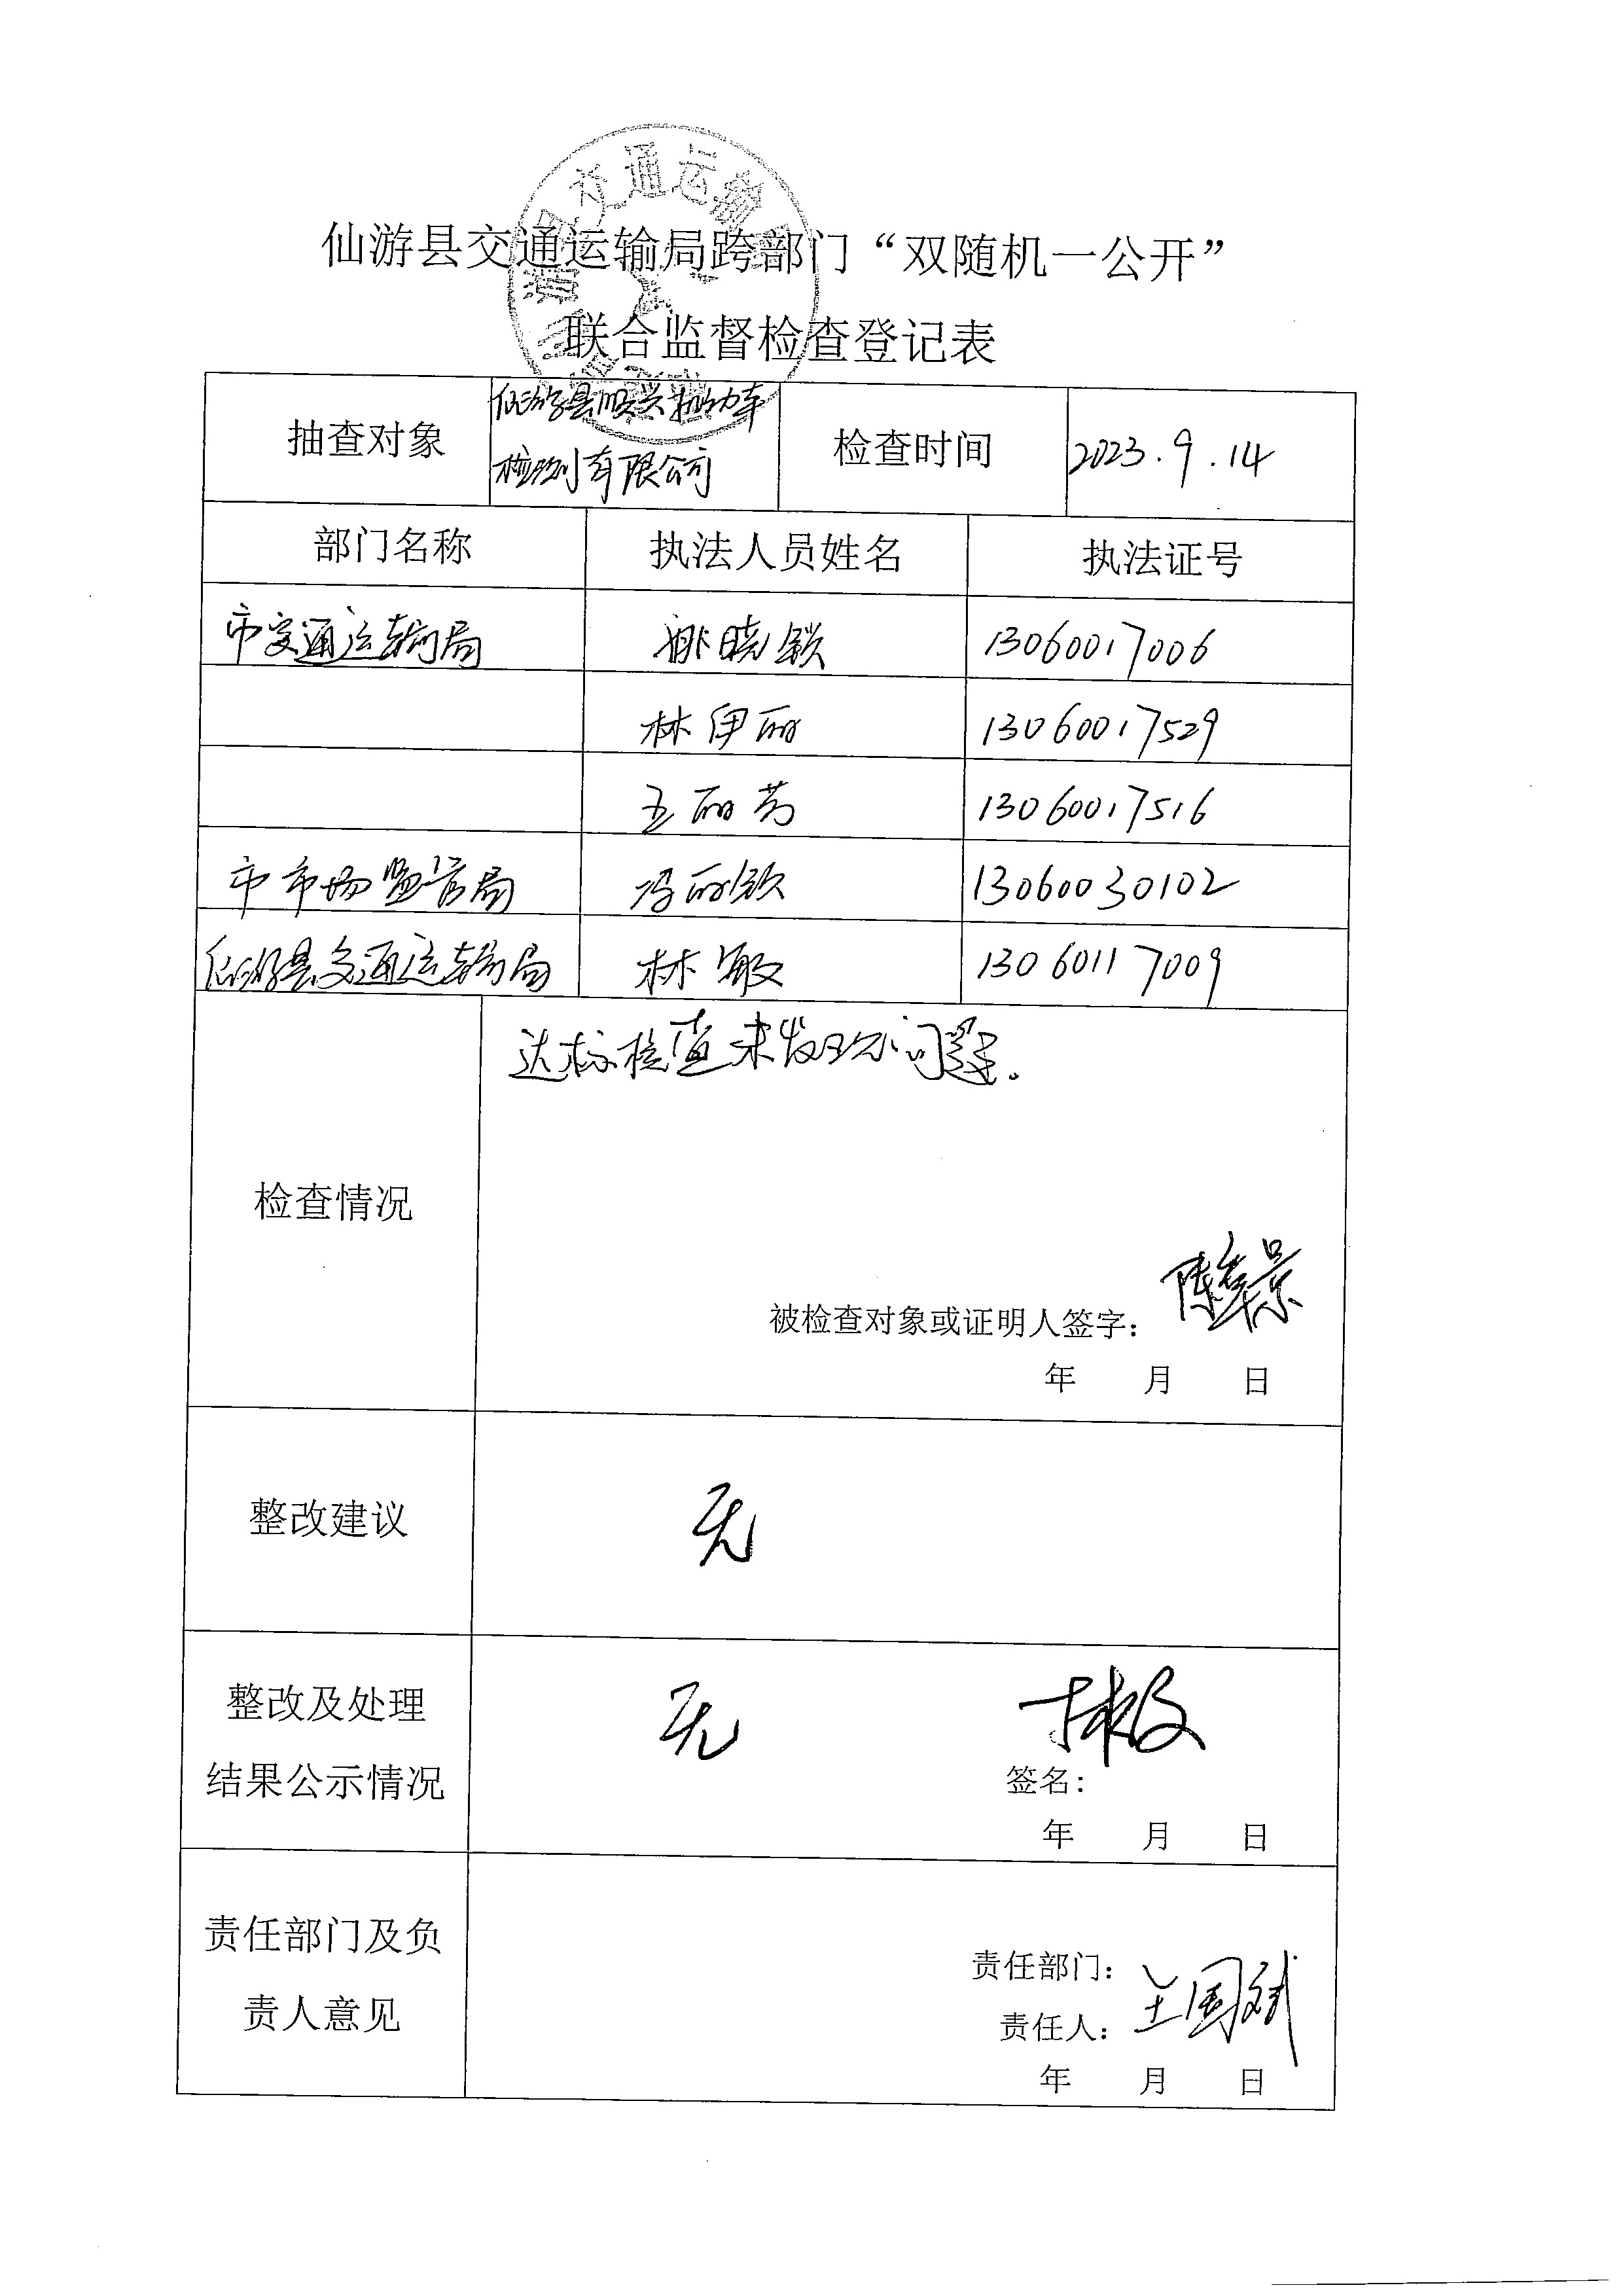 仙游县交通运输局跨部门“双随机一公开”
联合监督检查登记表
抽查对象 仙游县顺兴机动车 检查时间 2023.9.14
检测有限公司
部门名称 执法人员姓名 执法证号
市交通运输局 姚晓锁 13060017006
林伊丽 13060017529
王丽芳 13060017516
市市场监管局 冯丽钦 13060030102
仙游县交通运输局 林敏 13060117009
达标检查未发现问题。
检查情况
被检查对象或证明人签字:
年 月 日
整改建议 无
整改及处理 无
结果公示情况 签名: 林敏
年 月 日
责任部门及负 责任部门:
责人意见 责任人: 王国斌
年 月 日